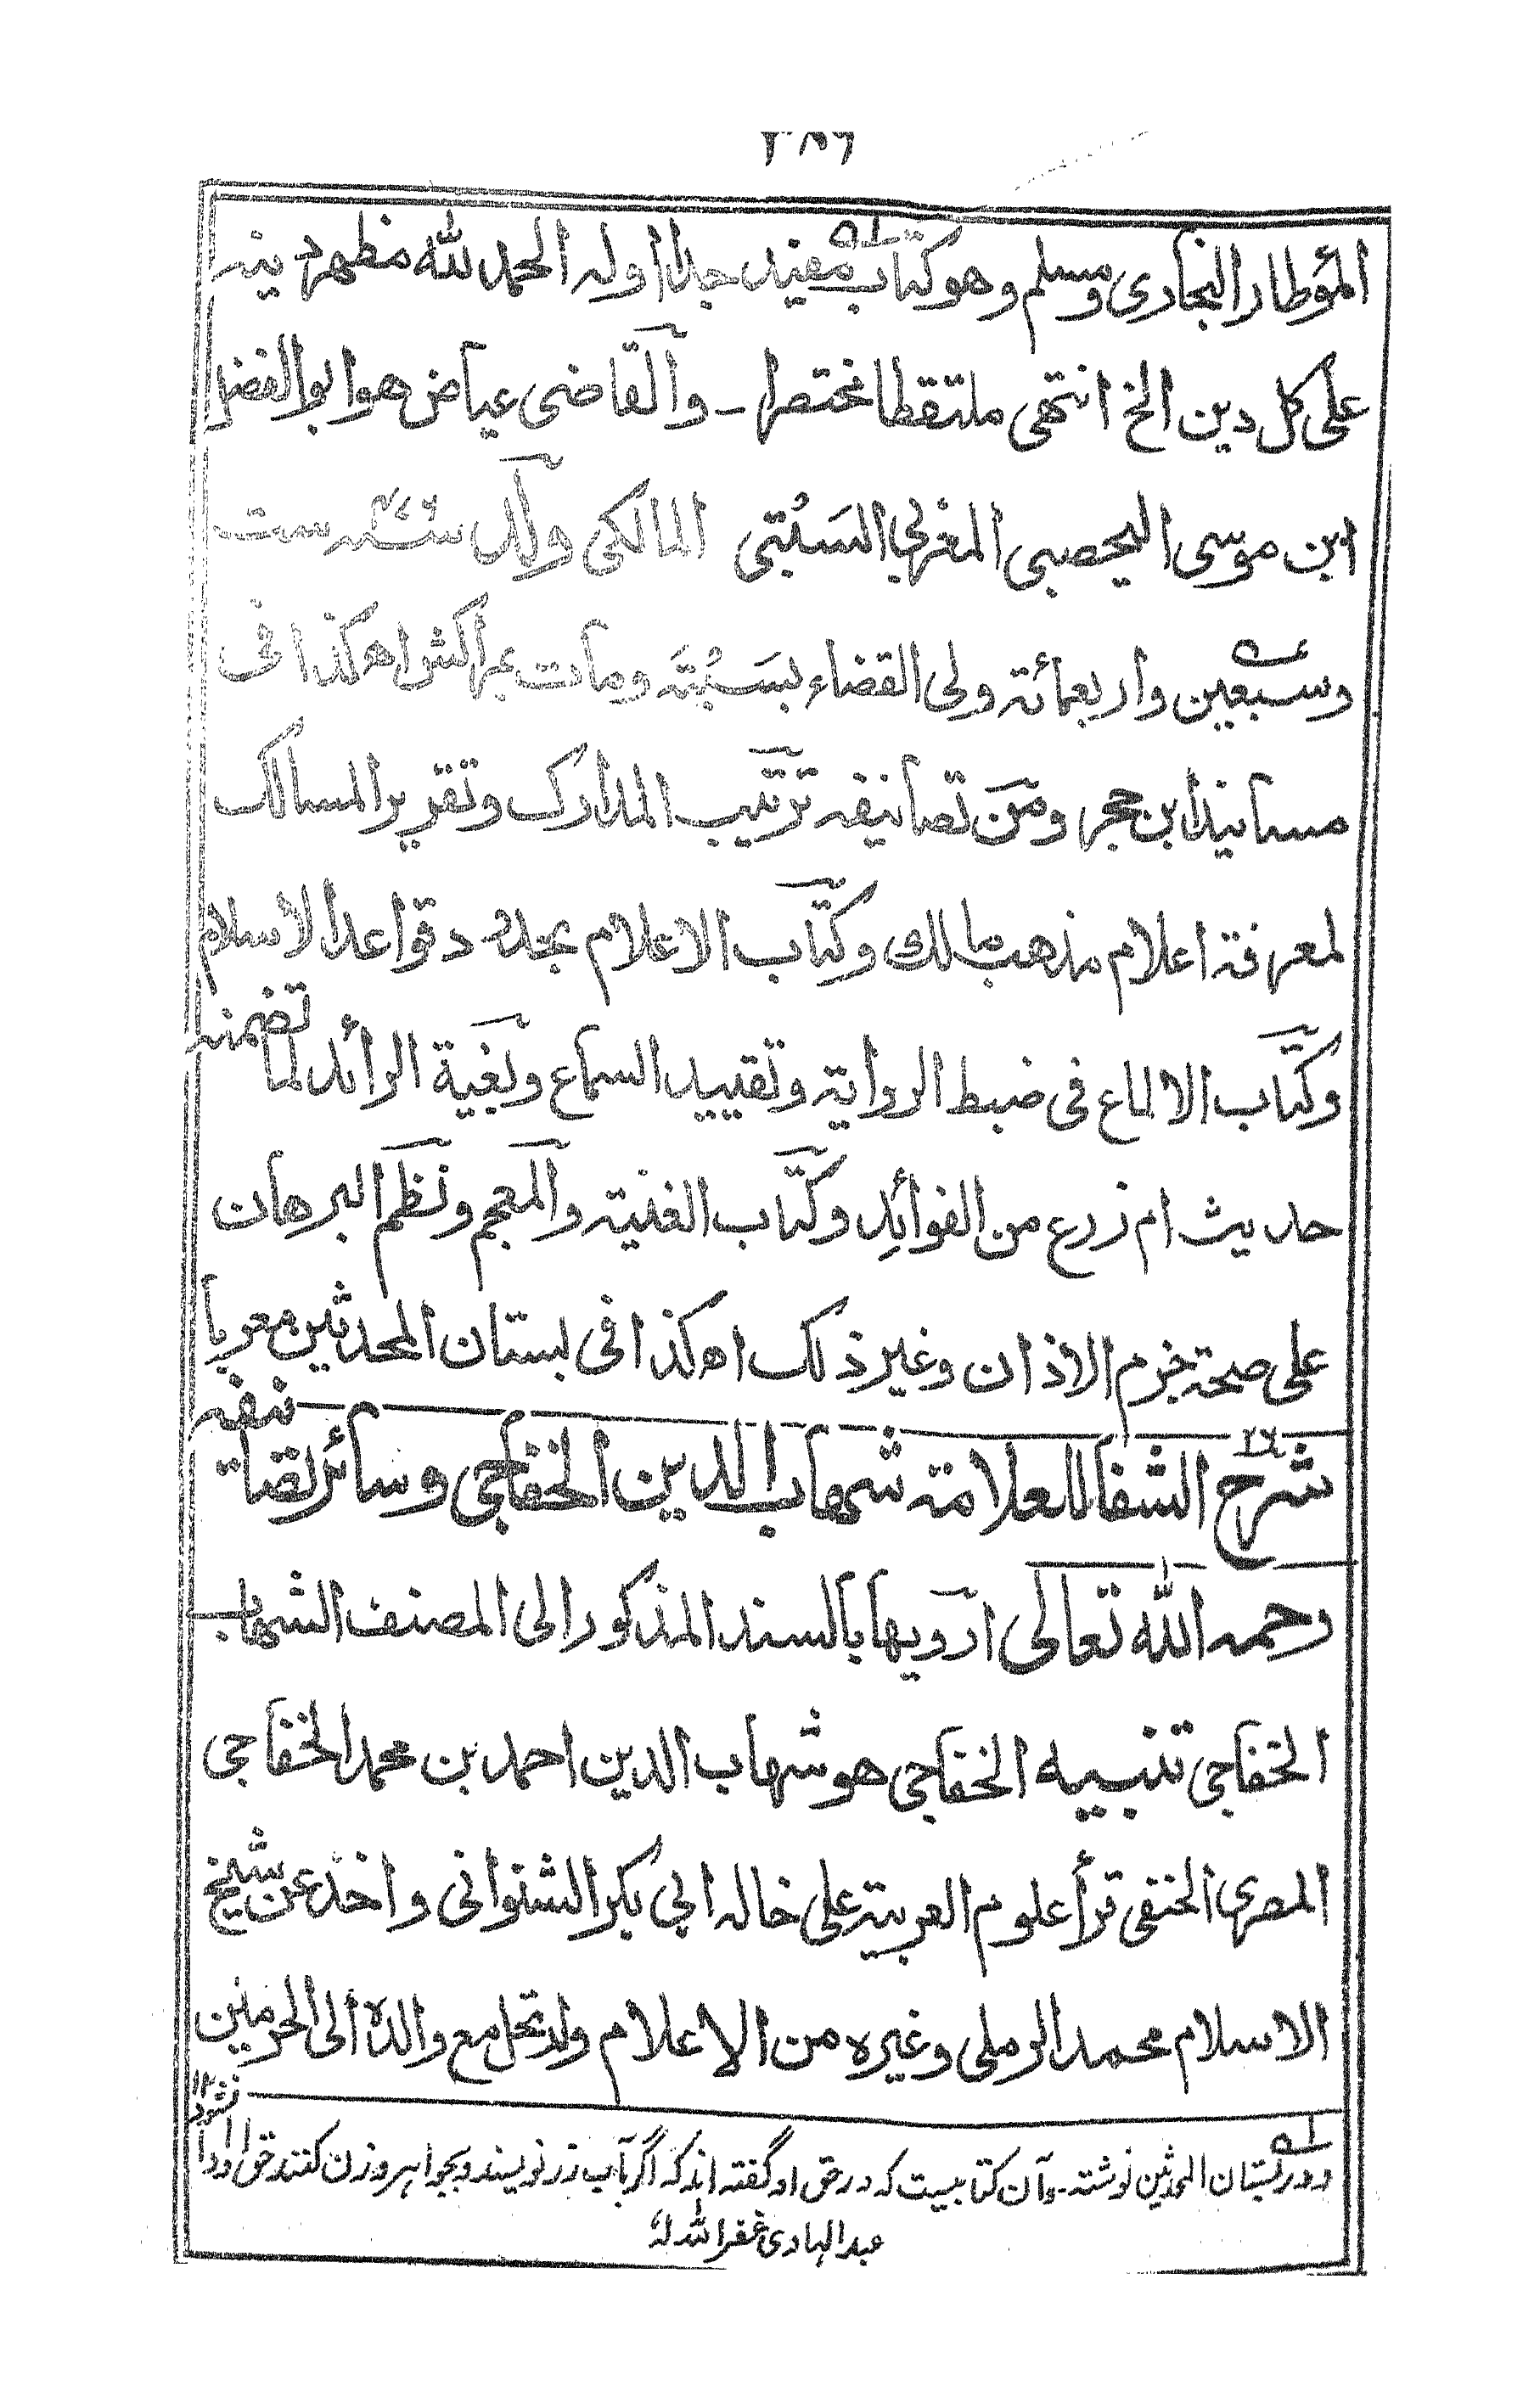 ٣٨٦
المؤطا والبخاری ومسلم وهو كتاب مفيد جدا اوله الحمد لله مظهر دينه
علی كل دين الخ انتهی ملتقطا مختصرا - والقاضی عیاض هو ابو الفضل
ابن موسی الیحصبی المغربی السَبْتی المالکی ولد سنة ٤٧٦ ست
وسبعین واربعمائة ولی القضاء بسَبْتَة ومات بمراکش اه کذا فی
مسانید ابن حجر ومن تصانیفه ترتیب المدارک وتقریر المسالک
لمعرفة اعلام مذهب مالک وکتاب الاعلام بحدود قواعد الاسلام
وکتاب الالماع فی ضبط الروایة وتقیید السماع وبغیة الرائد لما تضمنه
حدیث ام زرع من الفوائد وکتاب الغنیة والمعجم ونظم البرهان
علی صحة جزم الاذان وغیر ذلک اه کذا فی بستان المحدثین معربا
٢٦ شرح الشفا للعلامة شهاب الدین الخفاجی وسائر تصانیفه
رحمه الله تعالی ارویها بالسند المذکور الی المصنف الشهاب
الخفاجی تنبیه الخفاجی هو شهاب الدین احمد بن محمد الخفاجی
المصری الحنفی قرأ علوم العربیة علی خاله ابی بکر الشنوانی واخذ عن شیخ
الاسلام محمد الرملی وغیره من الاعلام وارتحل مع والده الی الحرمین
ودر بستان المحدثین نوشته - وآن کتابیست که در حق او گفته اند که اگر بآب زر نویسند وبجواهر وزن کنند حق او ادا نشود ١٢
عبد الهادی غفر الله له